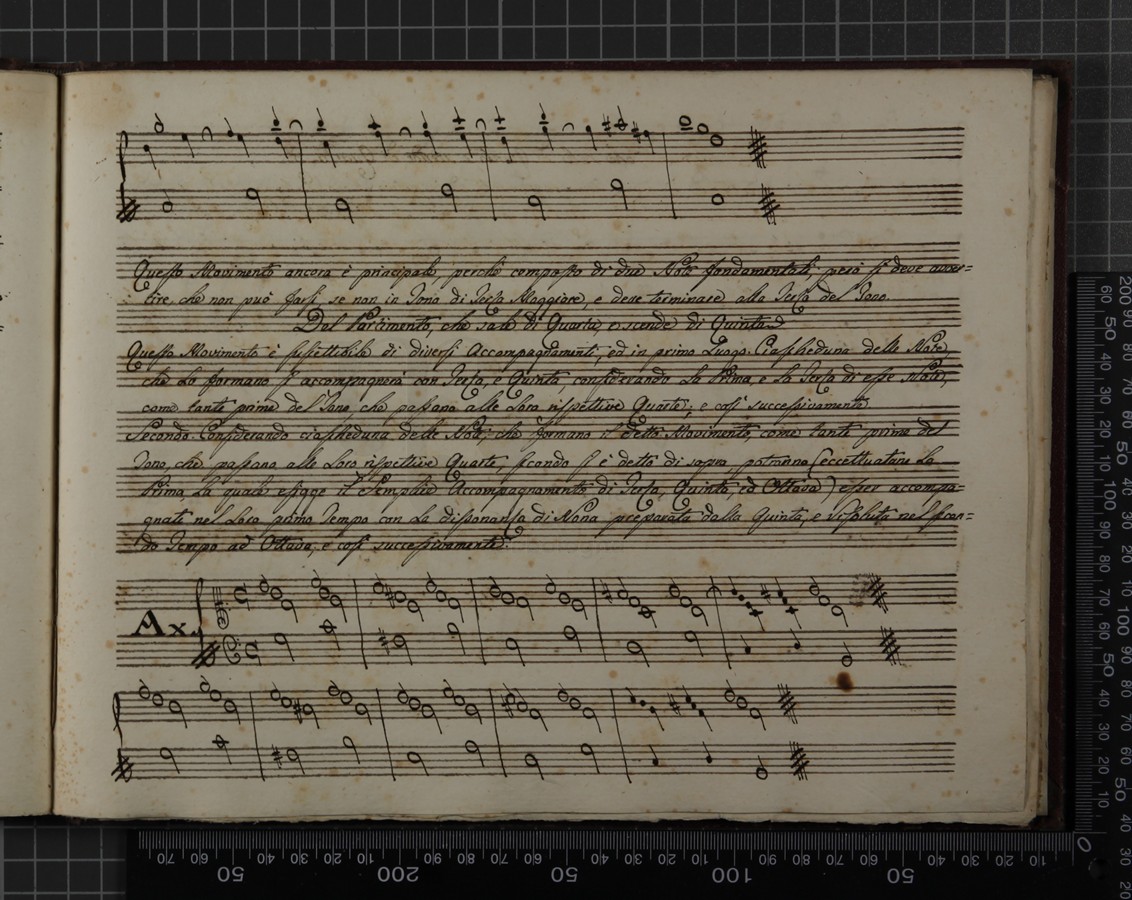 Questo Movimento ancora è principale, perchè composto di due Note fondamentali, però si deve avver=
tire, che non può farsi, se non in Tono di Terza Maggiore, e deve terminare alla Terza del Tono.
Del Partimento, che sale di Quarta, e scende di Quinta
Questo Movimento è suscettibile di diversi Accompagnamenti, ed in primo Luogo. Ciascheduna delle Note,
che Lo formano si accompagnerà con Terza, e Quinta, considerando La Prima, e la Terza di esse Note,
come tante prime del Tono, che passano alle Loro rispettive Quarte, e così successivamente.
Secondo Considerando ciascheduna delle Note, che formano il detto Movimento, come tante prime del
Tono, che passano alle Loro rispettive Quarte, secondo si è detto di sopra, potranno (eccettuatane La
Prima La quale esigge il Semplice Accompagnamento di Terza, Quinta, ed Ottava) esser accompa=
gnate nel Loro primo Tempo con La dissonanza di Nona preparata dalla Quinta, e risoluta nel secon=
do Tempo ad Ottava, e così successivamente.
Ax.
200 90 80 70 60 50 40 30 20 10
60 50 40 30 20 10
70 60 50 40 30 20 10
50 200 50 100 50 0